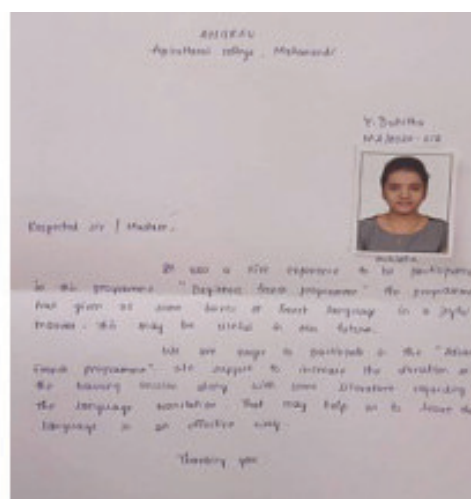 ANGRAU
Agricultural college, Mahanandi
Y.
Respected sir / Madam,
It was a nice experience to be participated
in this programme "Beginners french programme" the programme
has given us some basics of french language in a joyful
manner. this may be useful in our future.
We are eager to participate in the
french programme". to increase the duration of
the training session along with some literature regarding
the language translation. That may help us to learn the
language in an effective way.
Thanking you